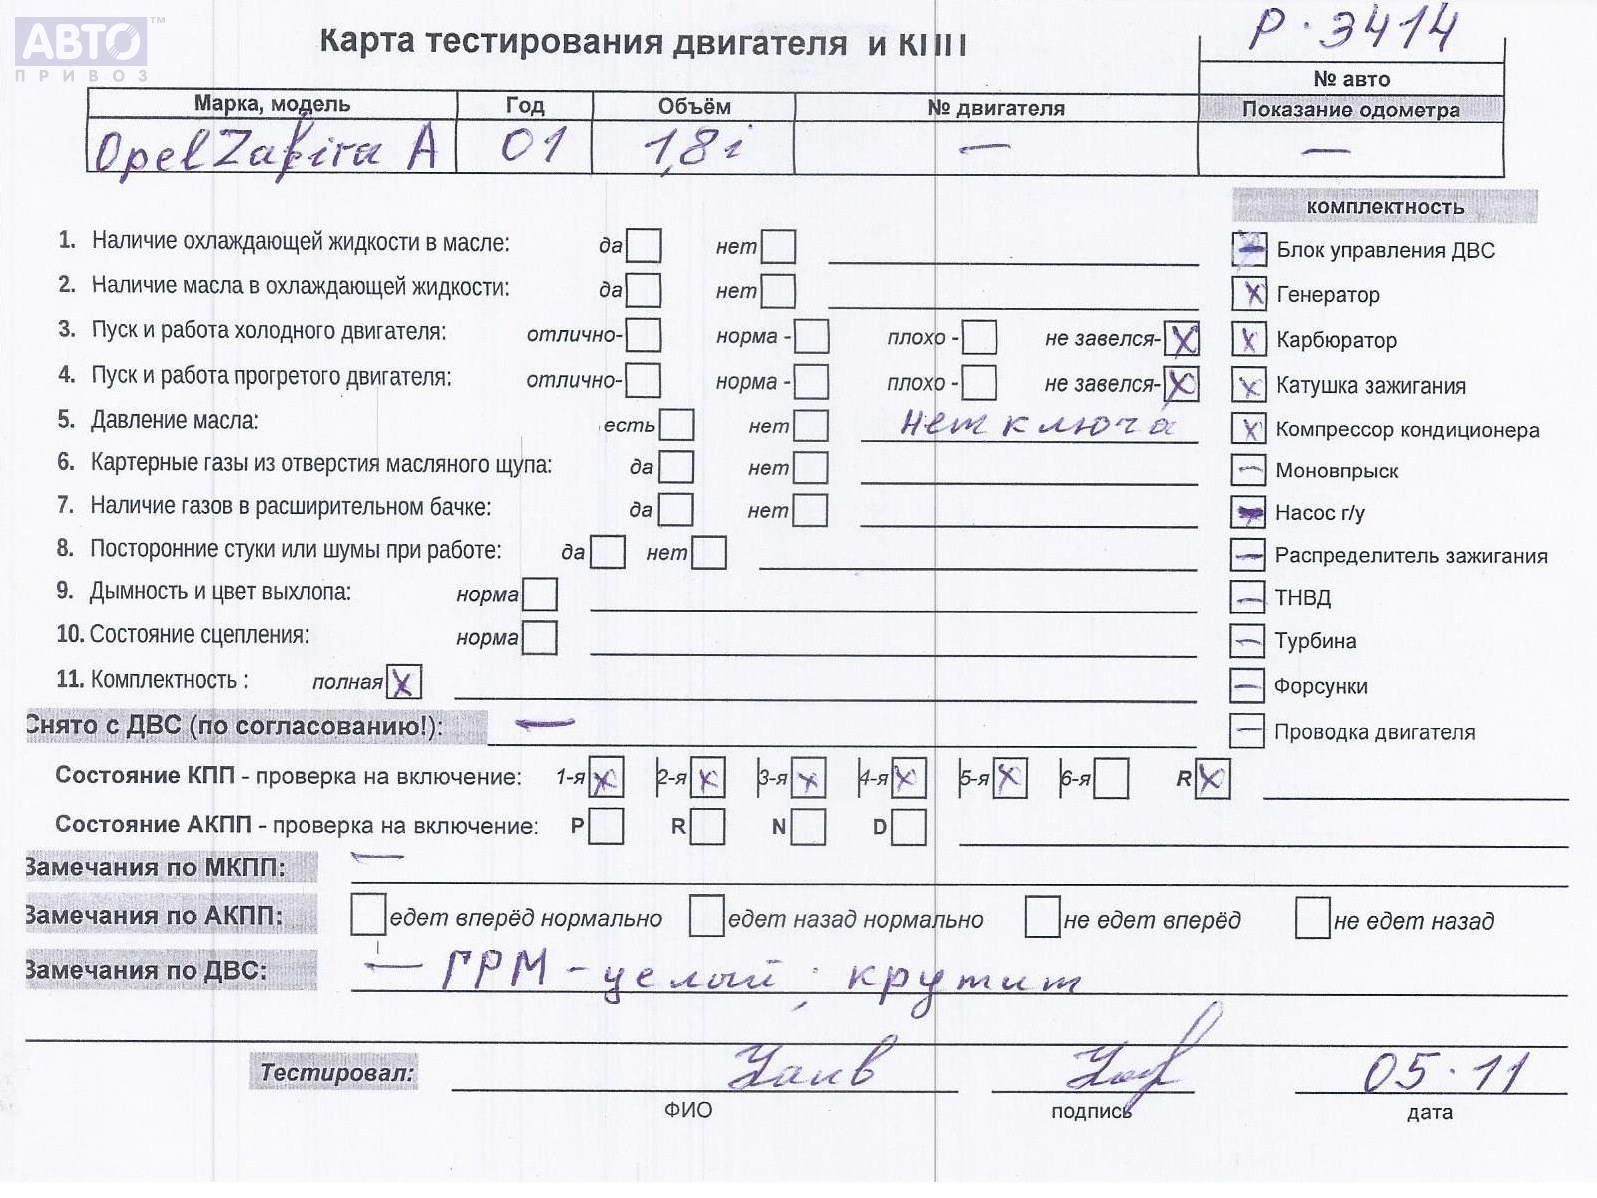 АВТО™
ПРИВОЗ
Карта тестирования двигателя и КПП
Р·3414
№ авто
Марка, модель Год Объём № двигателя Показание одометра
Opel Zafira A 01 1,8i — —
комплектность
1. Наличие охлаждающей жидкости в масле: да нет
Блок управления ДВС
2. Наличие масла в охлаждающей жидкости: да нет
Генератор
3. Пуск и работа холодного двигателя: отлично- норма - плохо - не завелся- X
Карбюратор
4. Пуск и работа прогретого двигателя: отлично- норма - плохо - не завелся- X
Катушка зажигания
5. Давление масла: есть нет нет ключа
Компрессор кондиционера
6. Картерные газы из отверстия масляного щупа: да нет
Моновпрыск
7. Наличие газов в расширительном бачке: да нет
Насос г/у
8. Посторонние стуки или шумы при работе: да нет
Распределитель зажигания
9. Дымность и цвет выхлопа: норма
ТНВД
10. Состояние сцепления: норма
Турбина
11. Комплектность : полная X
Форсунки
Снято с ДВС (по согласованию!): —
Проводка двигателя
Состояние КПП - проверка на включение: 1-я X 2-я X 3-я X 4-я X 5-я X 6-я R X
Состояние АКПП - проверка на включение: P R N D
Замечания по МКПП: —
Замечания по АКПП: едет вперёд нормально едет назад нормально не едет вперёд не едет назад
Замечания по ДВС: — ГРМ - целый, крутит
Тестировал: 05·11
ФИО подпись дата